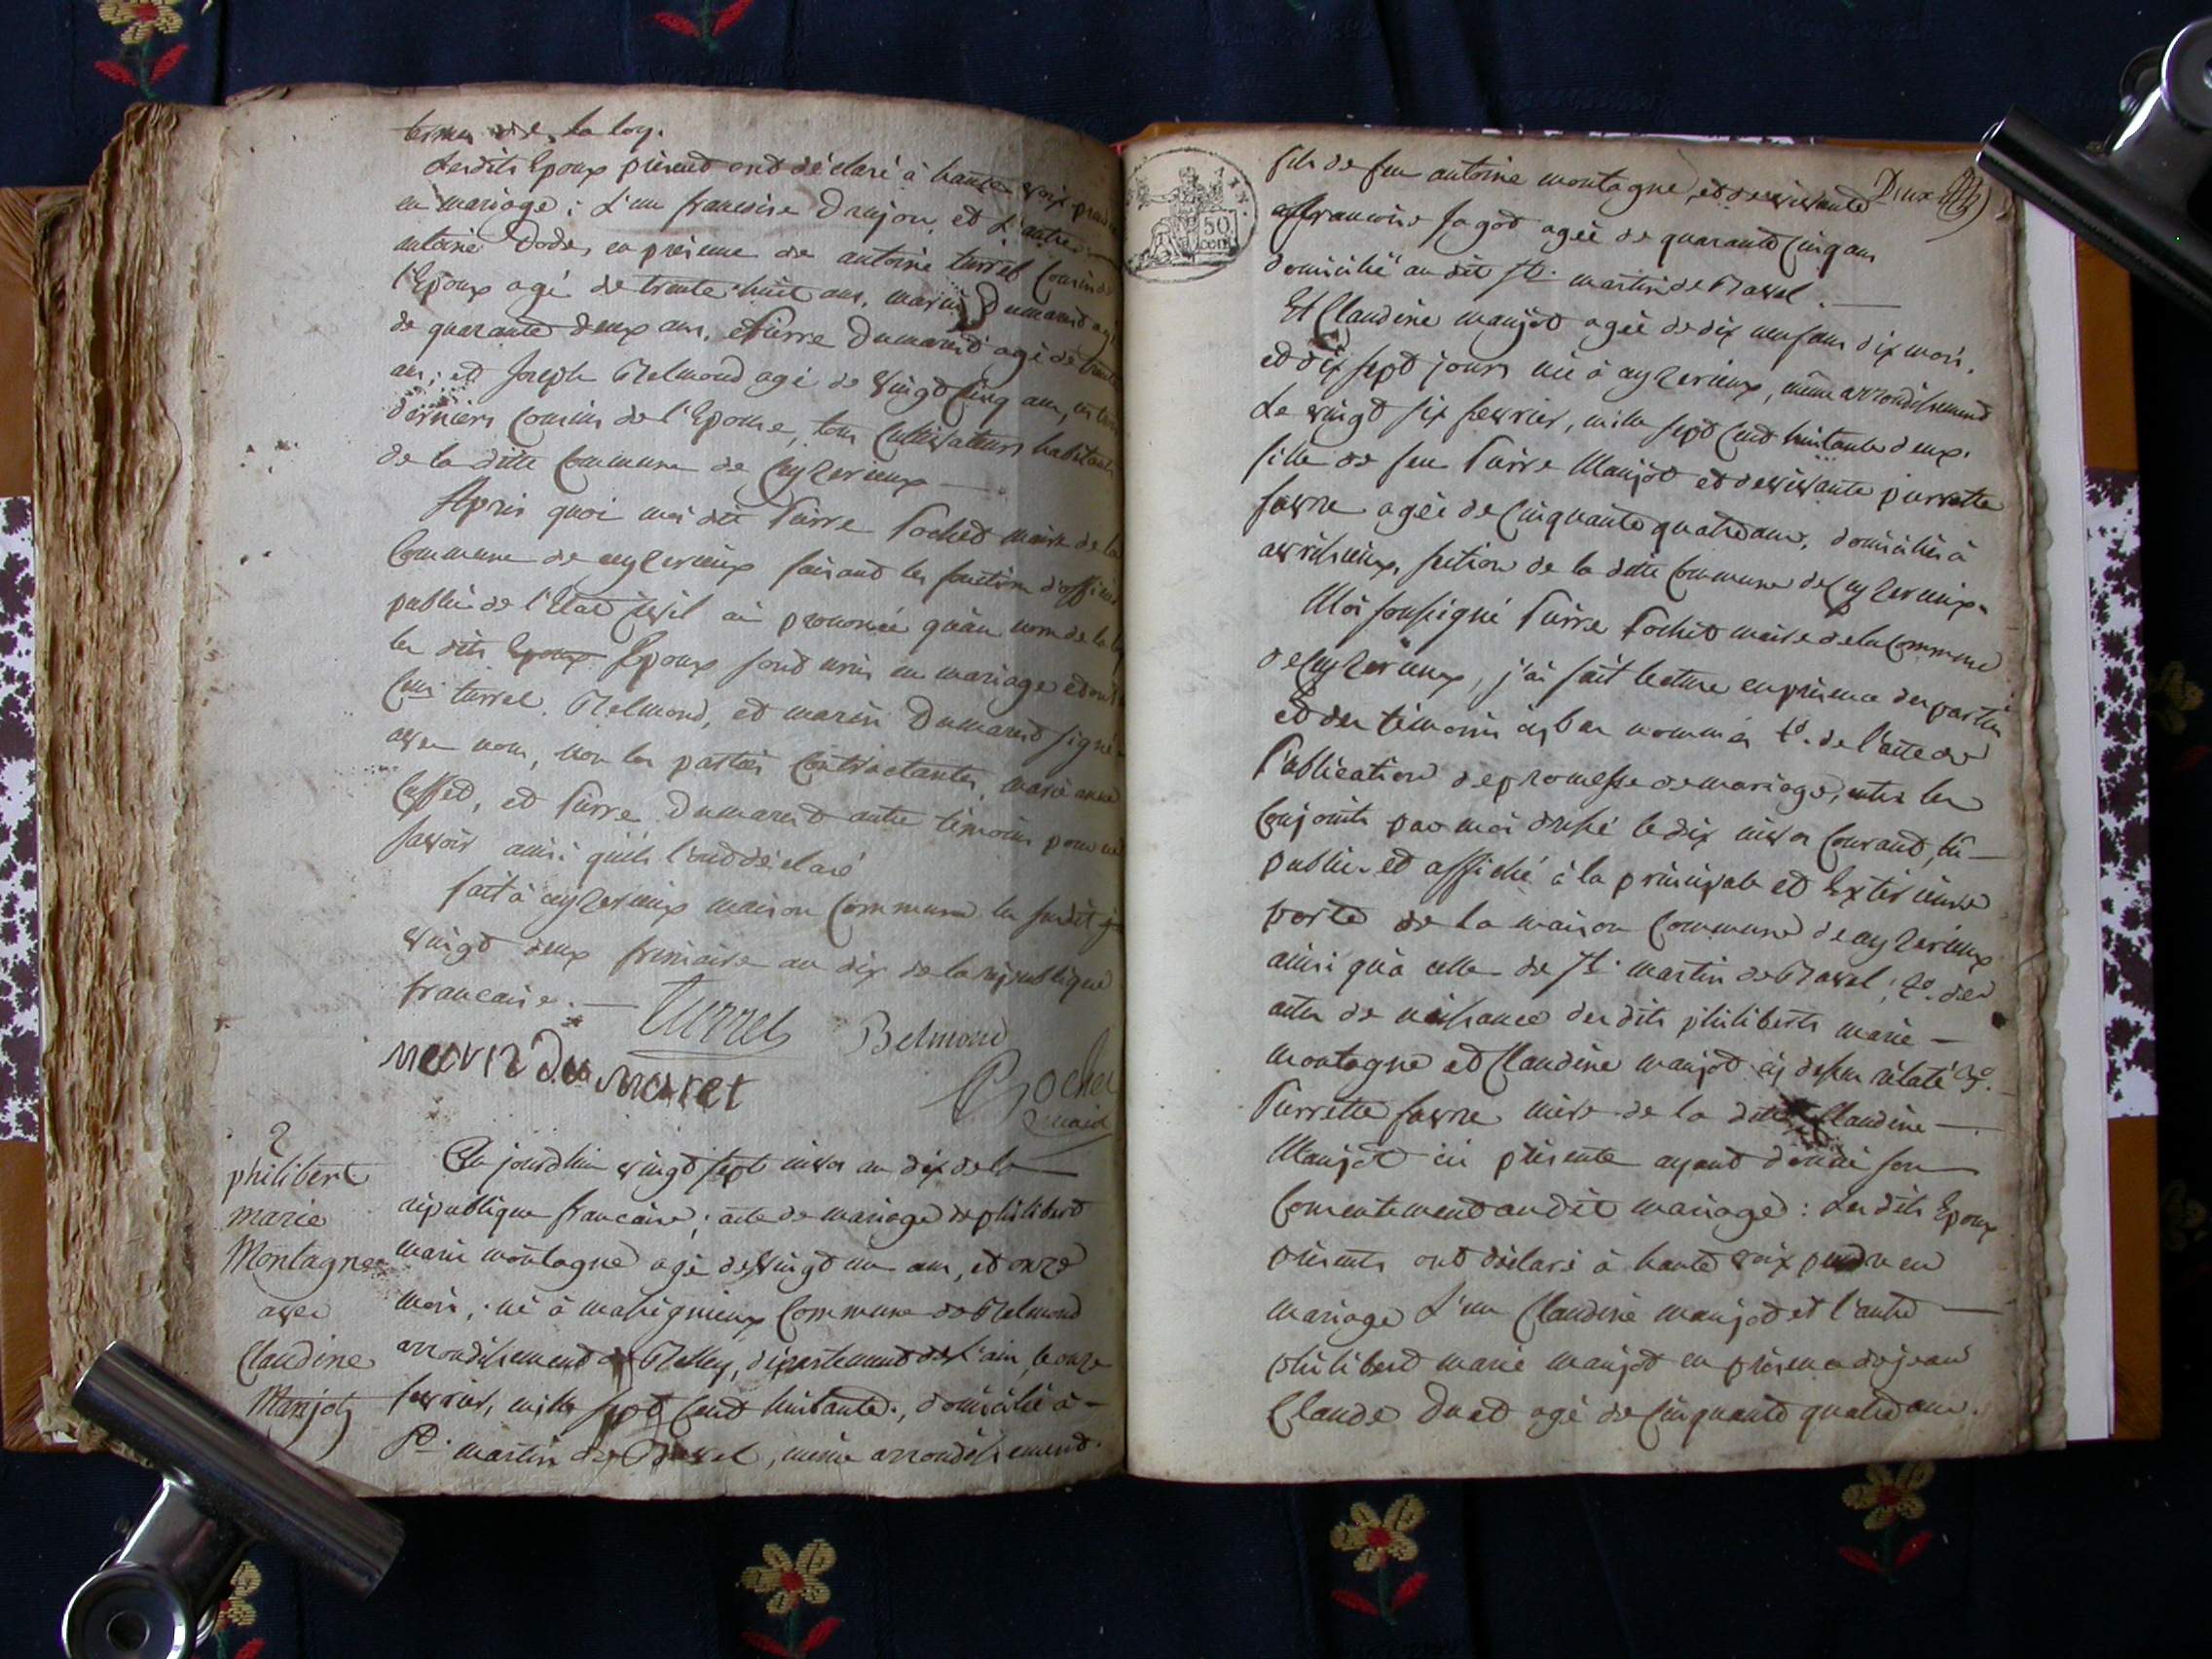 termes de la loy.
Lesdits Epoux présent ont déclaré à haute voix prendre
en mariage; L'un francoise Drujon, et L'autre
antoine Dode, en présence de antoine turrel Cousin de
l'Epoux agé de trente huit ans, marin Dumaret agé
de quarante deux ans, et Pierre Dumaret agé de trente
ans; et Joseph Belmond agé de vingt cinq ans, ces trois
derniers Cousins de l'Epouse, tous Cultivateurs habitants
de la ditte Commune de Ceyzerieux —
Apris quoi moi dit Pierre Pochet maire de la
Commune de ceyzerieux faisant les fonctions d'officier
public de l'Etat civil ai prononcé qu'au nom de la loy
les dits Epoux Epoux sont unis en mariage et ont
Ceux turrel, Belmond, et marin Dumaret signé
avec nous, non les parties Contractantes, marie anne
Cusset, et Pierre Dumaret autre témoins pour ne
savoir ainsi qu'ils l'ont déclaré
fait à ceyzerieux maison Commune les susdit jour
vingt deux frimaire an dix de la république
francaise. —
turrel Belmond
marin Du maret
Pochet
maire
2
philibert
marie
Montagne
avec
Claudine
Manjot
Ce jourdhui vingt sept nivos an dix de la
république francaise; acte de mariage de philibert
marie montagne agé de vingt un ans, et onze
mois, né à massignieux Commune de Belmond
arrondissement de Belley, département de l'ain, le onze
fevrier, mille sept Cent huitante, domicilié à —
St. martin de Bavel, même arrondissement.
Deux
fils de feu antoine montagne, et de vivante
francoise Jagot agée de quarante Cinq ans
domicilié au dit St. martin de Bavel. —
Et Claudine manjot agée de dix neuf ans dix mois,
et dix sept jours née à ceyzerieux, même arrondissement
Le vingt six fevrier, mille sept Cent huitante deux.
fille de feu Pierre Manjot et de vivante pierrette
favre agée de Cinquante quatre ans, domiciliés à
avrissieux, section de la dite Commune de Ceyzerieux.
Moi soussigné Pierre Pochet maire de la Commune
de Ceyzerieux, j'ai fait lecture en présence des parties
et des témoins cy bas nommés 1o. de l'acte de
Publication de promesse de mariage, entre les
Conjoints par moi dressé le dix nivos Courant, lû —
publié et affiché à la principale et Extérieure
porte de la maison Commune de ceyzerieux
ainsi qu'à celle de St. martin de Bavel; 2o. des
actes de naissance des dits philiberts marie —
montagne et Claudine manjot cy dessus rélaté 3o.
Pierrette favre mère de la dite Claudine —
Manjot ici présente ayant donné son
Consentement audit mariage: Les dits Epoux
présents ont déclaré à haute voix prendre en
mariage L'un Claudine manjot et l'autre —
philibert marie manjot en présence de jean
Claude Duet agé de Cinquante quatre ans.
50
cent